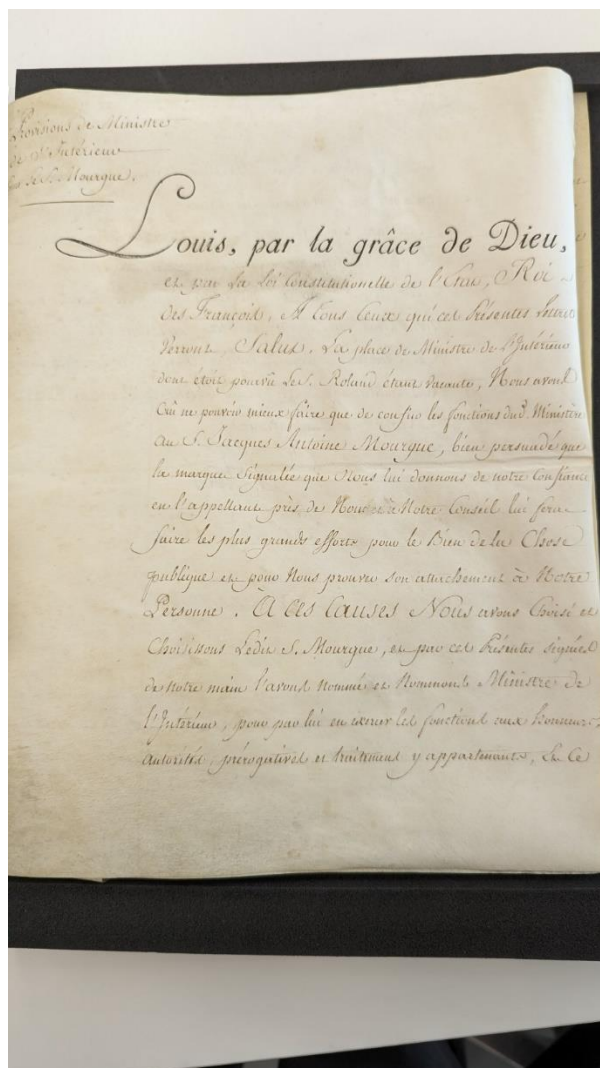 Provisions de Ministre
de l'Intérieur
de S. Mourgue.
Louis, par la grâce de Dieu,
et par la Loi Constitutionelle de l'Etat, Roi
des François, A tous Ceux qui ces Présentes Lettres
Verront, Salut. La place de Ministre de l'Intérieur
dont étoit pourvû Le S. Roland étant vacante, Nous avons
Crû ne pouvoir mieux faire que de confier les fonctions dud. Ministère
au S. Jacques Antoine Mourgue, bien persuadé que
la marque Signalée que Nous lui donnons de notre Confiance
en l'appellant près de Nous et à Notre Conseil lui fera
faire les plus grands efforts pour le Bien de la Chose
publique et pour Nous prouver son attachement à Notre
Personne. A Ces Causes Nous avons Choisi et
Choisissons Ledit S. Mourgue, et par ces Présentes signées
de Notre main l'avons Nommé et Nommons Ministre de
l'Intérieur, pour par lui en exercer les fonctions aux honneurs,
autorités, prérogatives et traitement y appartenants, En Ce